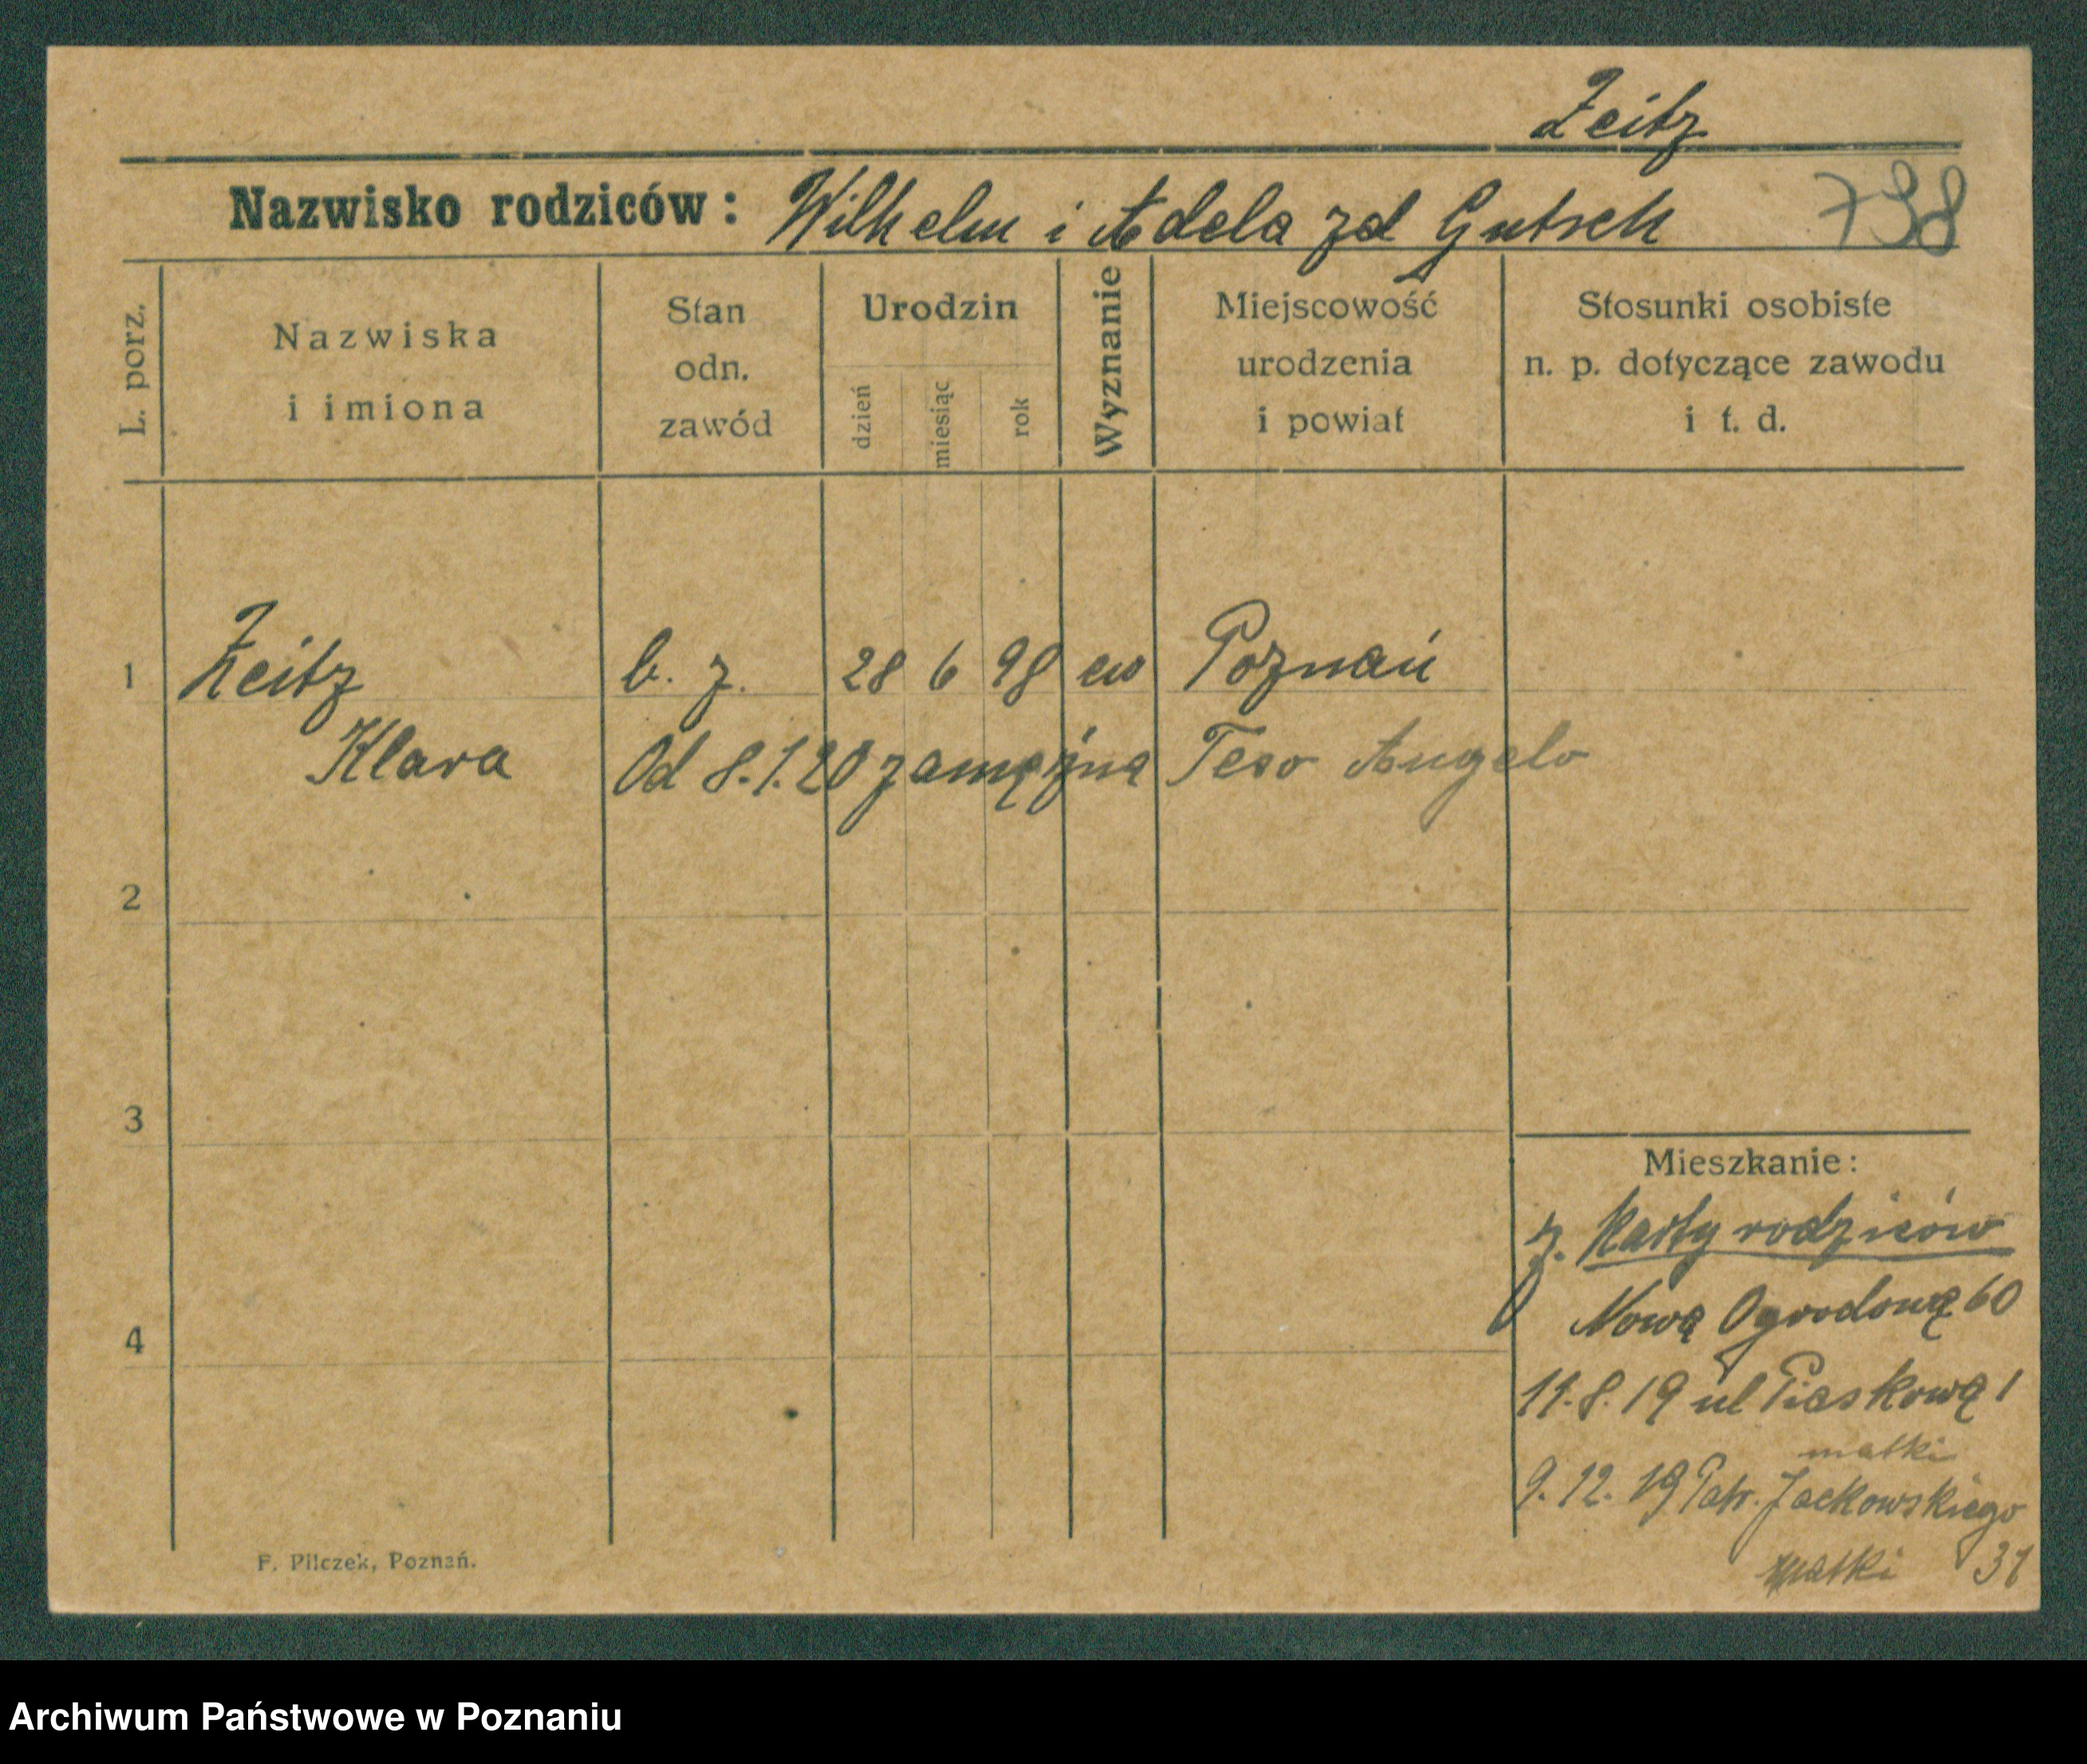 Zeitz
Nazwisko rodziców: Wilhelm i Adela zd Gutsch
738
L. porz.
Nazwiska
i imiona
Stan
odn.
zawód
Urodzin
dzień
miesiąc
rok
Wyznanie
Miejscowość
urodzenia
i powiat
Stosunki osobiste
n. p. dotyczące zawodu
i t. d.
1 Zeitz b. z. 28 6 98 ew Poznań
Klara Od 8.1.20 zamężna Teso Angelo
2
3
4
Mieszkanie:
z. Karty rodziców
Nową Ogrodową 60
11.8.19 ul Piaskową 1
matki
9.12.19 Patr. Jackowskiego
matki 31
F. Pilczek, Poznań.
Archiwum Państwowe w Poznaniu